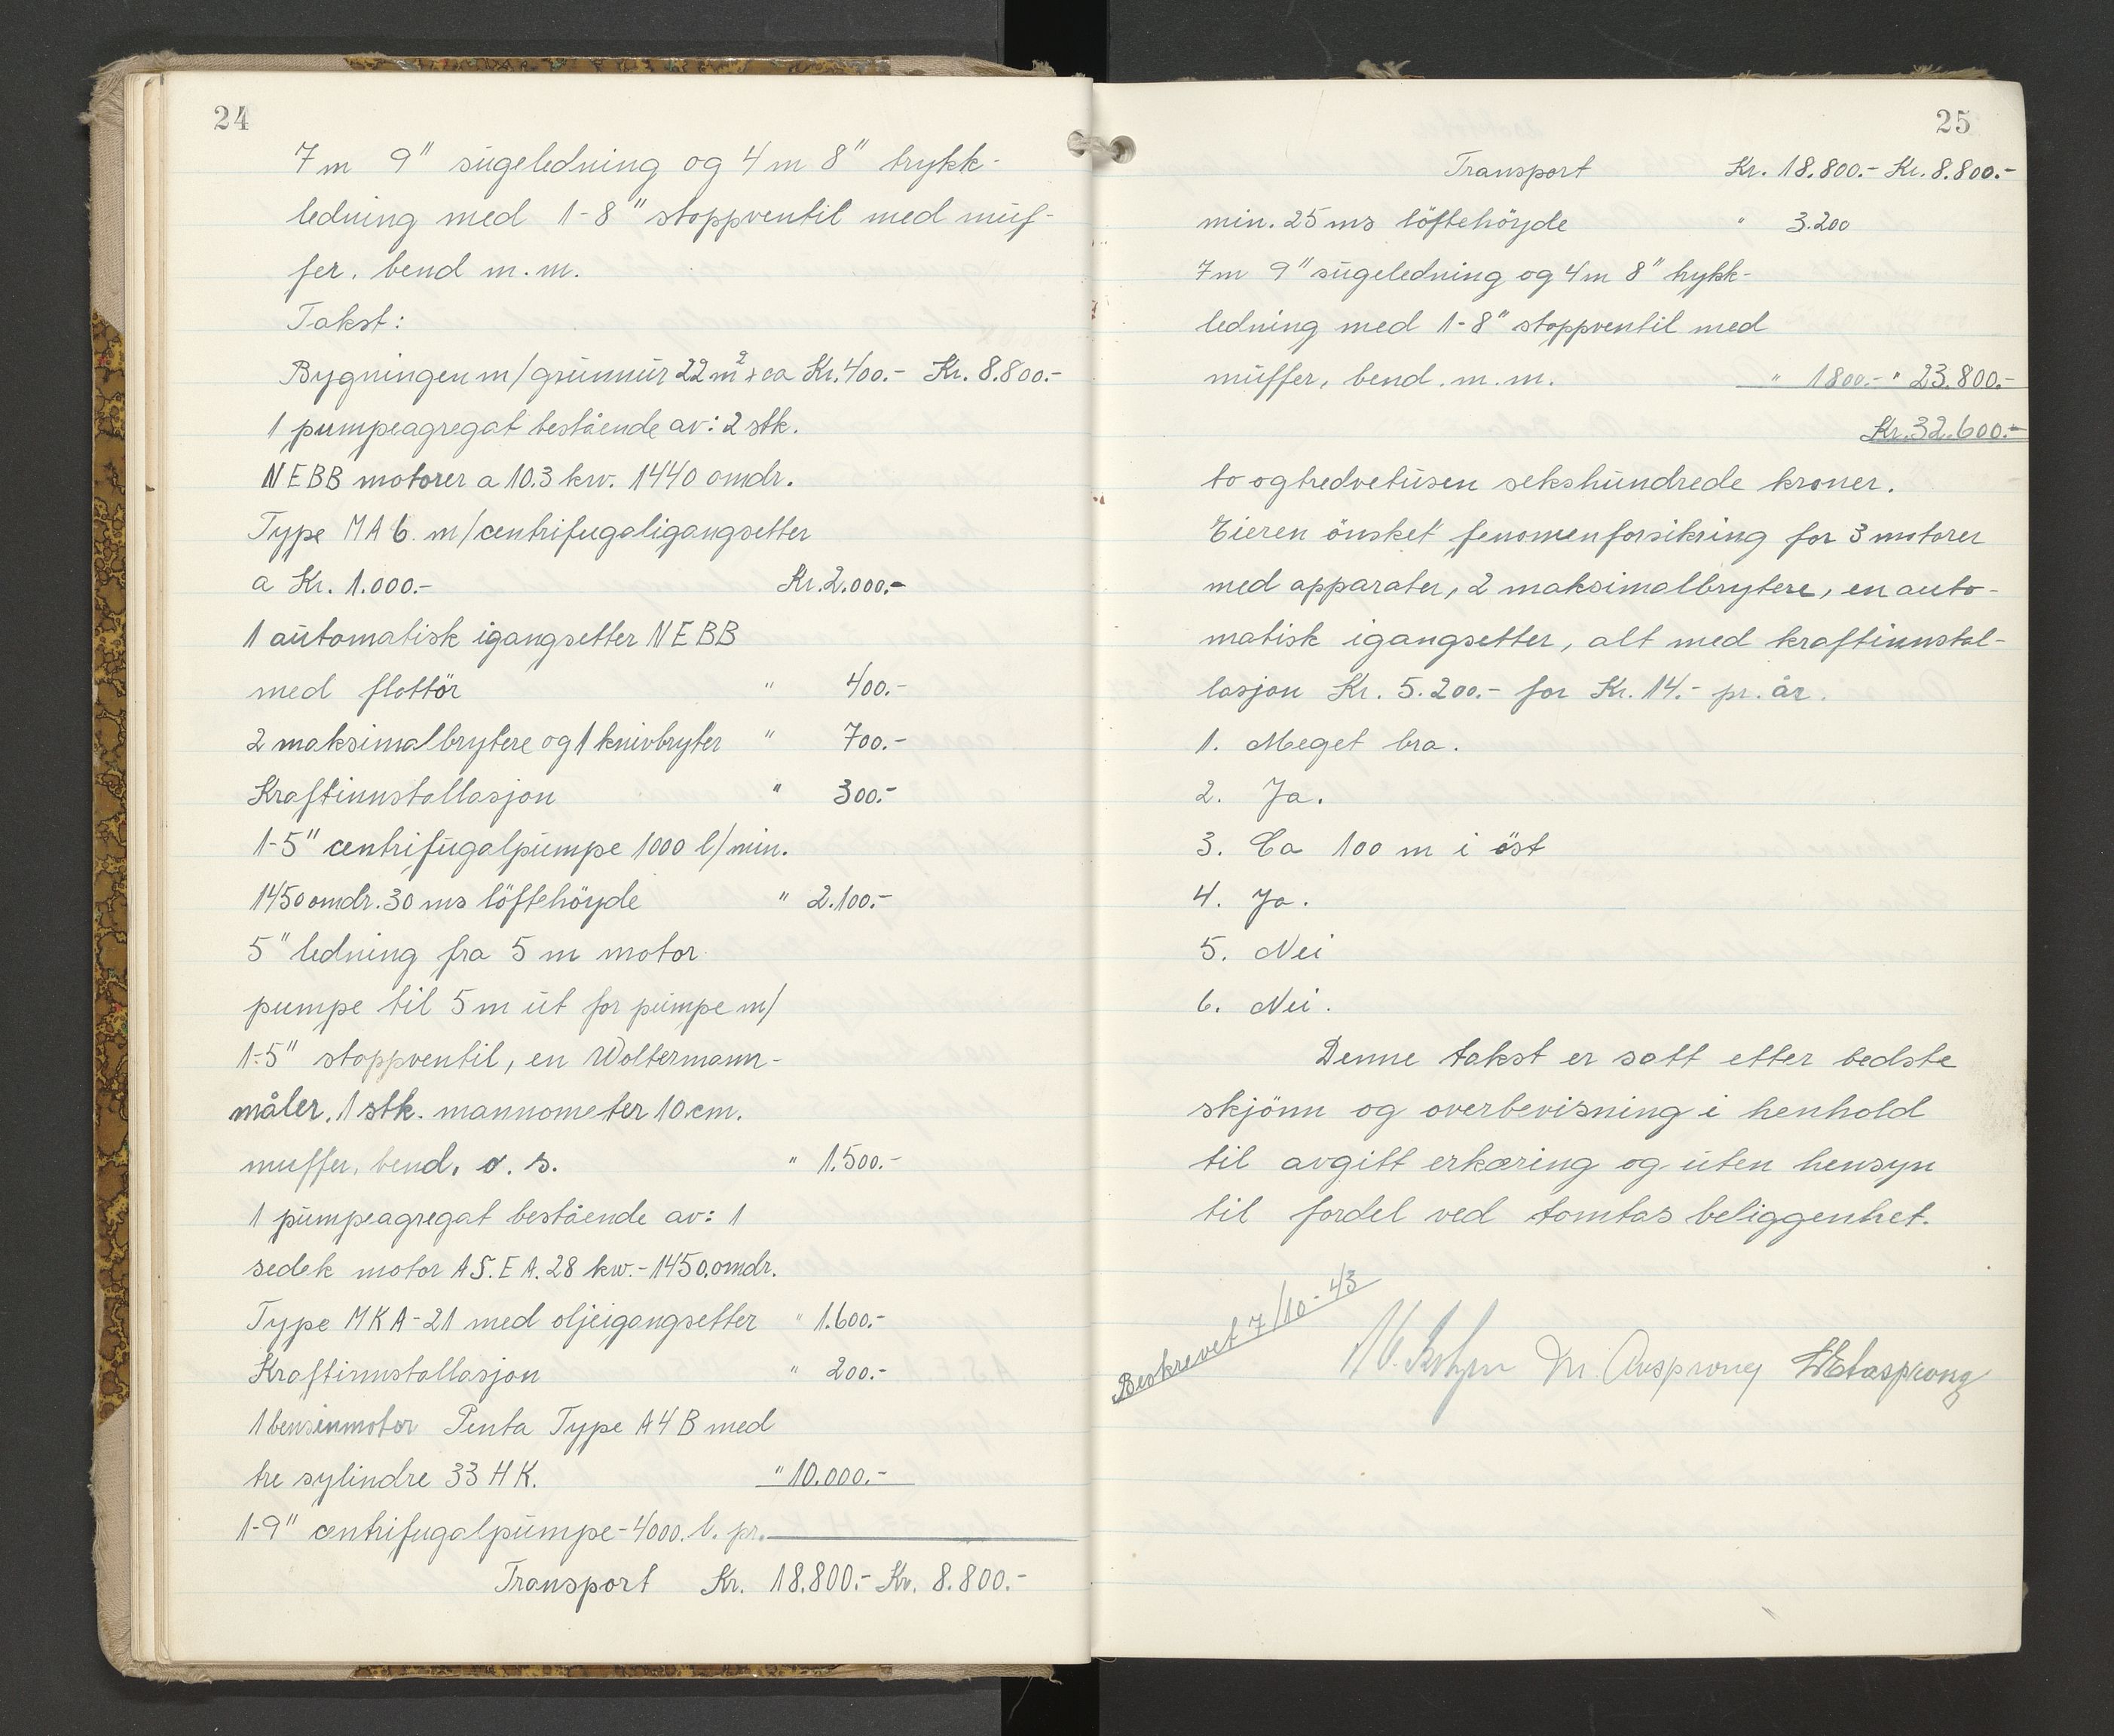 24
7 m 9" sugeledning og 4 m 8" trykk-
ledning med 1-8" stoppventil med muf-
fer, bend m.m.
Takst:
Bygningen m/grunnur 22 m² x ca Kr. 400.- Kr. 8.800.-
1 pumpeagregat bestående av: 2 stk.
NEBB motorer a 10.3 kw. 1440 omdr.
Type MA 6. m/centrifugaligangsetter
a Kr. 1.000.- Kr. 2.000.-
1 automatisk igangsetter NEBB
med flottör " 400.-
2 maksimalbrytere og 1 knivbryter " 700.-
Kraftinnstallasjon " 300.-
1-5" centrifugalpumpe 1000 l/min.
1450 omdr. 30 ms löftehöyde " 2.100.-
5" ledning fra 5 m motor
pumpe til 5 m ut for pumpe m/
1-5" stoppventil, en Woltermann-
måler. 1 stk. mannometer 10 cm.
muffer, bend, o. s. " 1.500.-
1 pumpeagregat bestående av: 1
sedek motor A.S.E.A. 28 kw.- 1450.omdr.
Type MKA-21 med oljeigangsetter " 1.600.-
Kraftinnstallasjon " 200.-
1 bensinmotor Penta Type A4B med
tre sylindre 33 HK. " 10.000.-
1-9" centrifugalpumpe - 4000. l. pr.
Transport Kr. 18.800.- Kr. 8.800.-
25
Transport Kr. 18.800.- Kr. 8.800.-
min. 25 ms löftehöyde " 3.200
7 m 9" sugeledning og 4 m 8" trykk-
ledning med 1-8" stoppventil med
muffer, bend. m.m. " 1800.- " 23.800.-
Kr. 32.600.-
to ogtredvetusen sekshundrede kroner.
Eieren önsket fenomenforsikring for 3 motorer
med apparater, 2 maksimalbrytere, en auto-
matisk igangsetter, alt med kraftinnstal-
lasjon Kr. 5.200.- for Kr. 14.- pr. år.
1. Meget bra.
2. Ja.
3. Ca 100 m i öst
4. Ja.
5. Nei
6. Nei.
Denne takst er satt etter bedste
skjönn og overbevisning i henhold
til avgitt erkæring og uten hensyn
til fordel ved tomtas beliggenhet.
Beskrevet 7/10-43